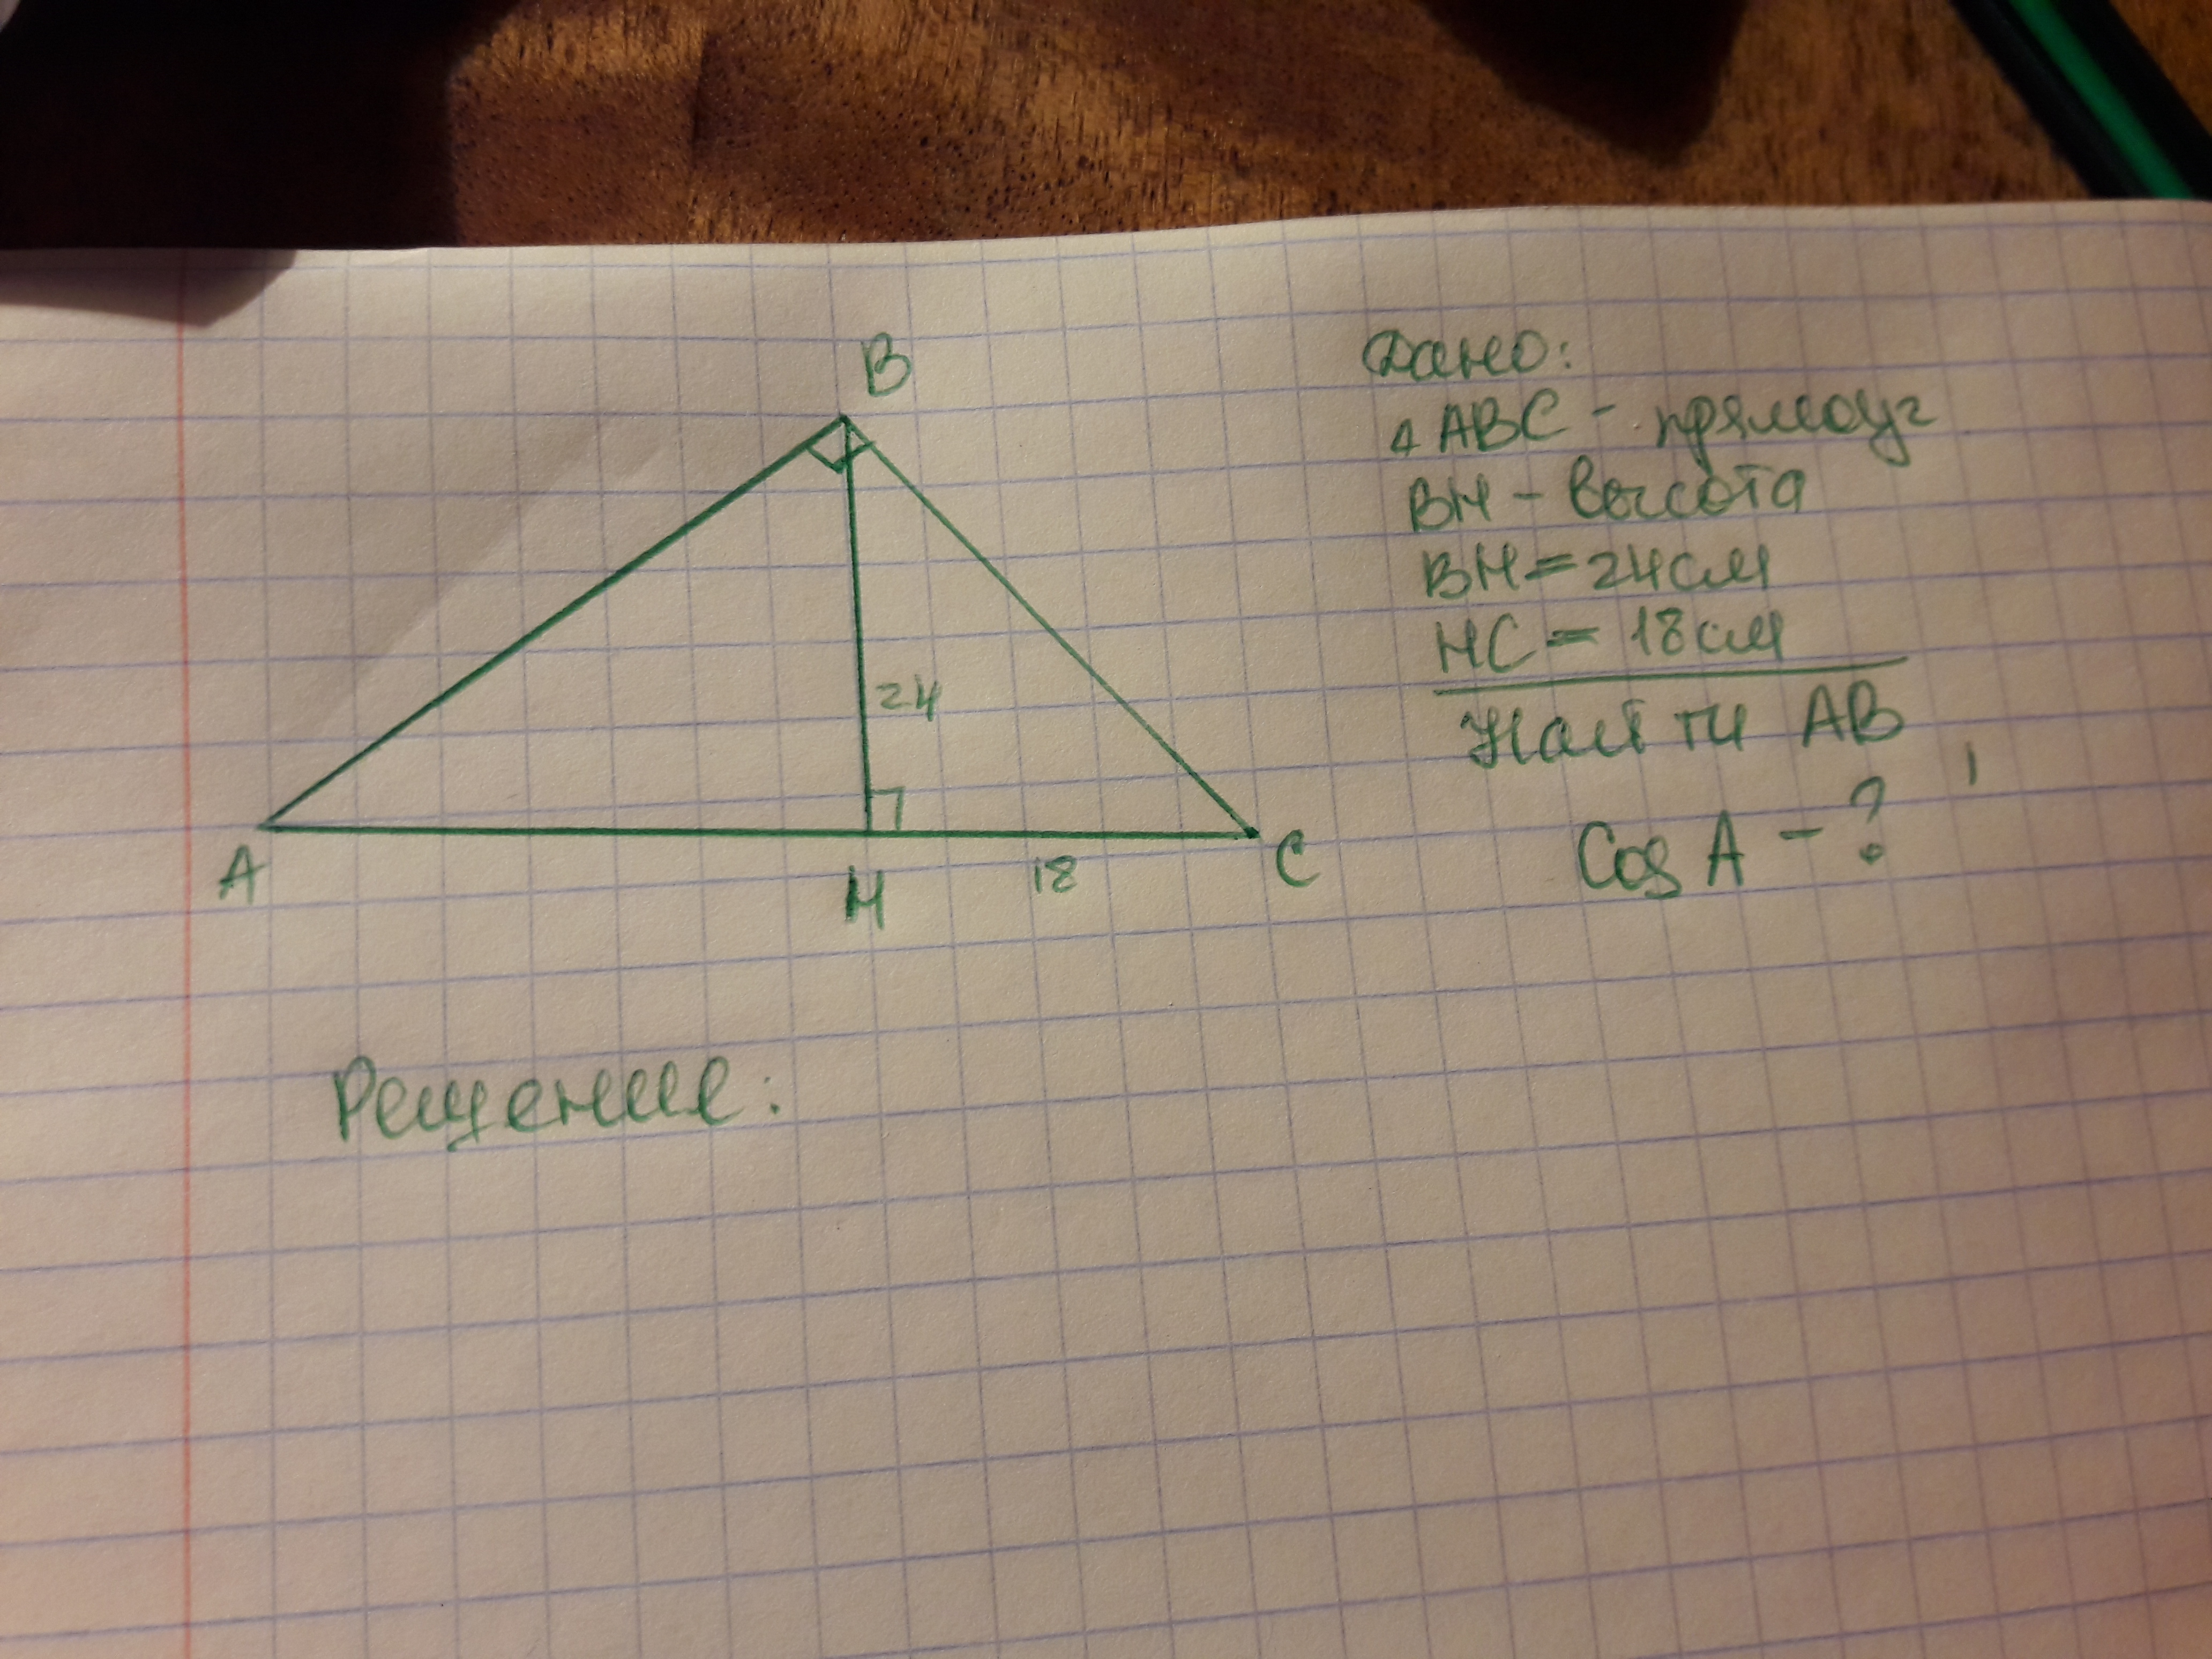 B
Дано:
△ABC - прямоуг
BH - высота
BH = 24см
HC = 18см
Найти AB,
Cos A - ?
24
A
H
18
C
Решение: